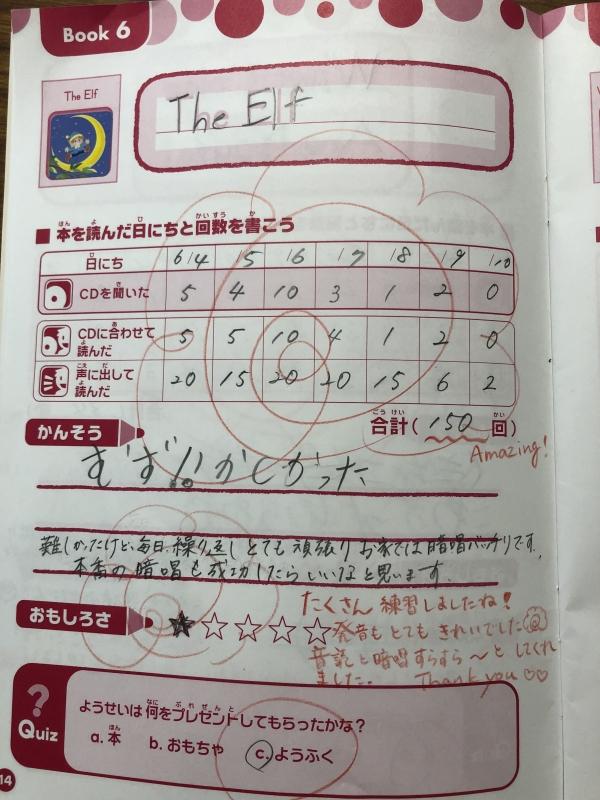 Book 6
The Elf
The Elf
■ 本を読んだ日にちと回数を書こう
日にち 6/4 /5 /6 /7 /8 /9 /10
CDを聞いた 5 4 10 3 1 2 0
CDに合わせて読んだ 5 5 10 4 1 2 0
声に出して読んだ 20 15 20 20 15 6 2
合計( 150 回)
Amazing!
かんそう
むずかしかった
難しかったけど、毎日、繰り返しとても頑張りお家では暗唱バッチリです。
本番の暗唱も成功したらいいなと思います。
おもしろさ ★☆☆☆☆
たくさん練習しましたね!
発音もとてもきれいでした
音読と暗唱すらすら〜としてくれ
ました。 Thank you ♡♡
? Quiz
ようせいは何をプレゼントしてもらったかな?
a. 本 b. おもちゃ c. ようふく
14